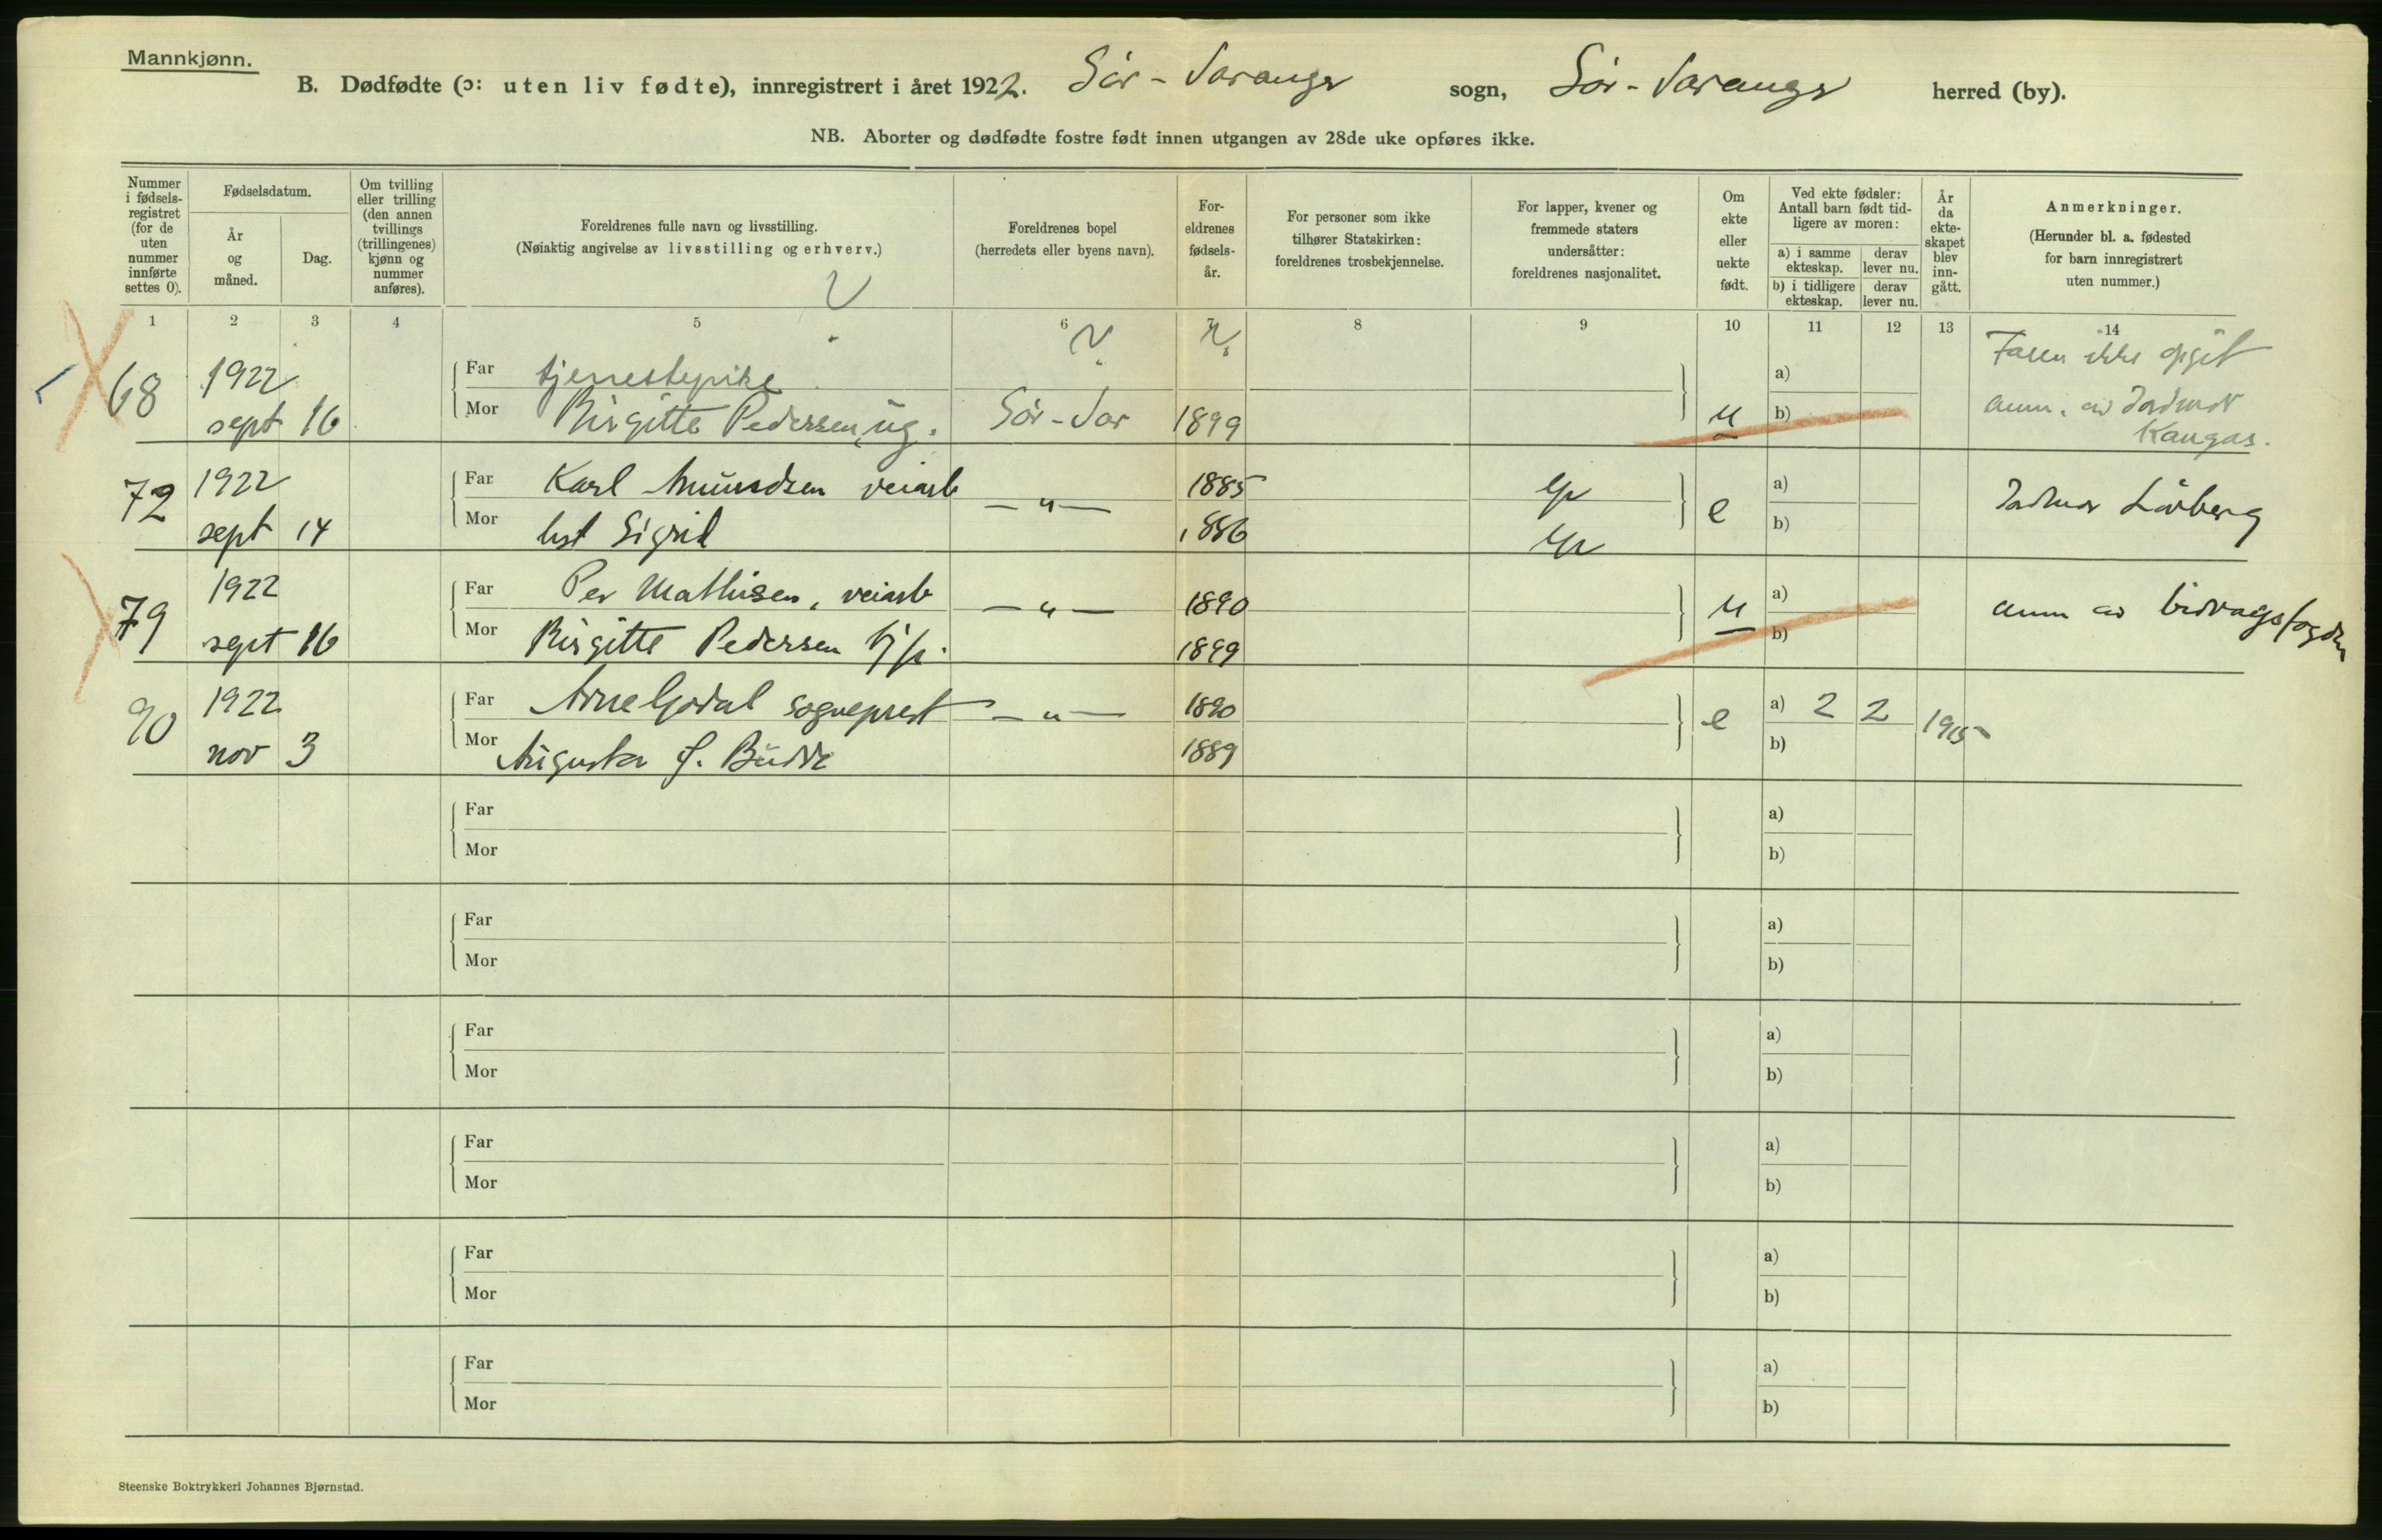 Mannkjønn.
B. Dødfødte (ɔ: uten liv fødte), innregistrert i året 1922. Sör-Varanger sogn, Sör-Varanger herred (by).
NB. Aborter og dødfødte fostre født innen utgangen av 28de uke opføres ikke.
Nummer i fødsels-registret (for de uten nummer innførte settes 0).
Fødselsdatum.
År og måned.
Dag.
Om tvilling eller trilling (den annen tvillings (trillingenes) kjønn og nummer anføres).
Foreldrenes fulle navn og livsstilling.
(Nøiaktig angivelse av livsstilling og erhverv.)
Foreldrenes bopel (herredets eller byens navn).
For-eldrenes fødsels-år.
For personer som ikke tilhører Statskirken: foreldrenes trosbekjennelse.
For lapper, kvener og fremmede staters undersåtter: foreldrenes nasjonalitet.
Om ekte eller uekte født.
Ved ekte fødsler: Antall barn født tid-ligere av moren:
a) i samme ekteskap. derav lever nu.
b) i tidligere ekteskap. derav lever nu.
År da ekte-skapet blev inn-gått.
Anmerkninger.
(Herunder bl. a. fødested for barn innregistrert uten nummer.)
1 2 3 4 5 6 7 8 9 10 11 12 13 14
68 1922 Far tjenestepike a) Faren ikke opgit
sept 16 Mor Birgitte Pedersen, ug. Sör-Var 1899 u b) anm. av Jordmor
Kangas.
72 1922 Far Karl Amundsen veiarb — " — 1885 lp e a) Jordmor Lövberg
sept 14 Mor hst Sigrid 1886 lp b)
79 1922 Far Per Mathisen, veiarb — " — 1890 u a) anm av bidragsfogden
sept 16 Mor Birgitte Pedersen tj.p. 1899 b)
90 1922 Far Arne Godal sogneprest — " — 1890 e a) 2 2 1915
nov 3 Mor Augusta J. Budde 1889 b)
Far a)
Mor b)
Far a)
Mor b)
Far a)
Mor b)
Far a)
Mor b)
Far a)
Mor b)
Far a)
Mor b)
Steenske Boktrykkeri Johannes Bjørnstad.